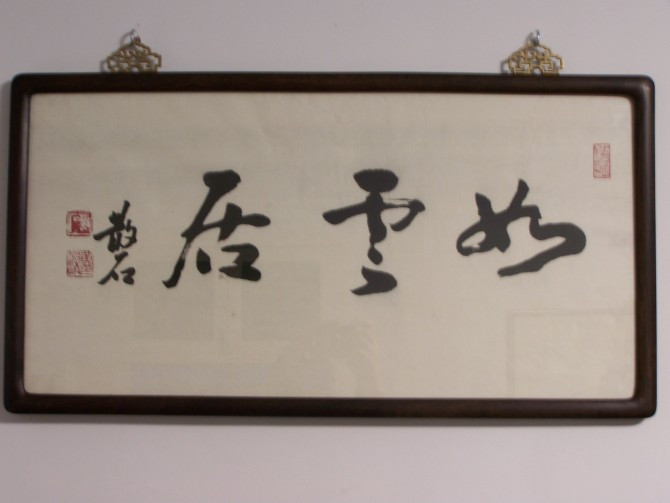 如雲居
散石